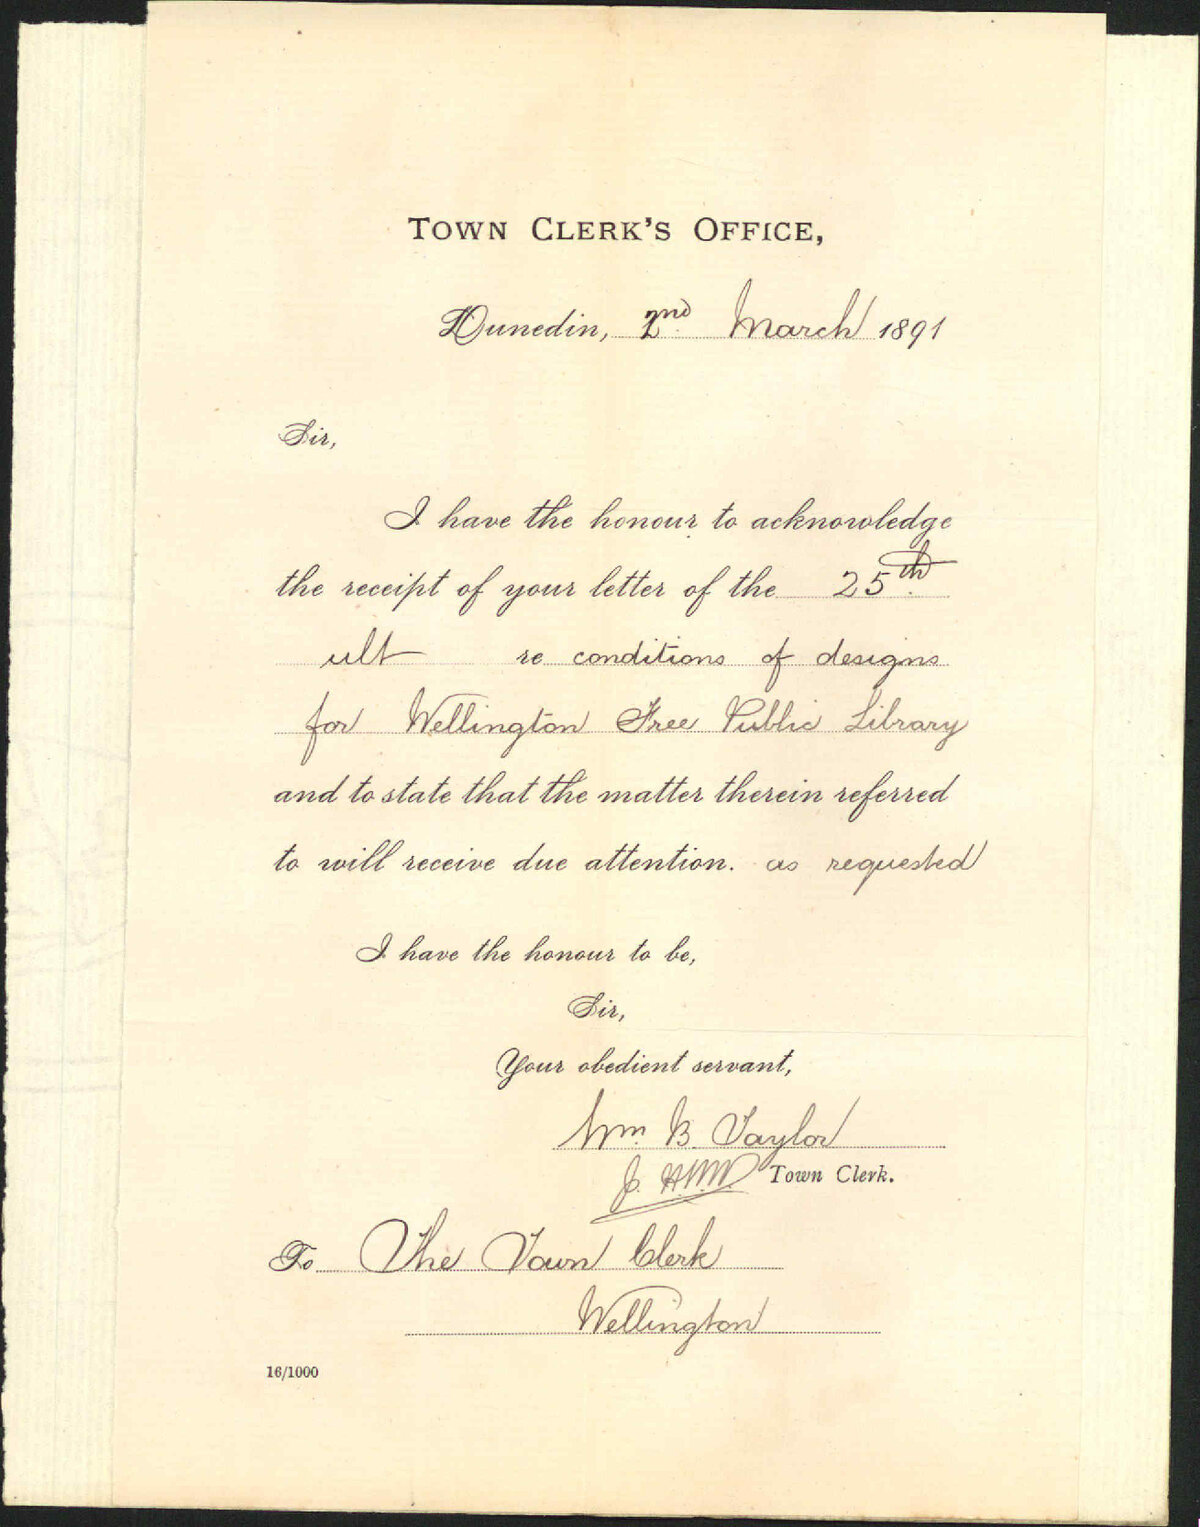 TOWN CLERK'S OFFICE,
Dunedin, 2nd. March 1891
Sir,
I have the honour to acknowledge
the receipt of your letter of the 25th.
ult re conditions of designs
for Wellington Free Public Library
and to state that the matter therein referred
to will receive due attention. as requested
I have the honour to be,
Sir,
Your obedient servant,
Wm. B. Taylor
Town Clerk.
To The Town Clerk
Wellington
16/1000